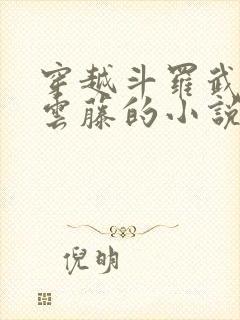 穿越斗羅武
雲藤的小說
倪明